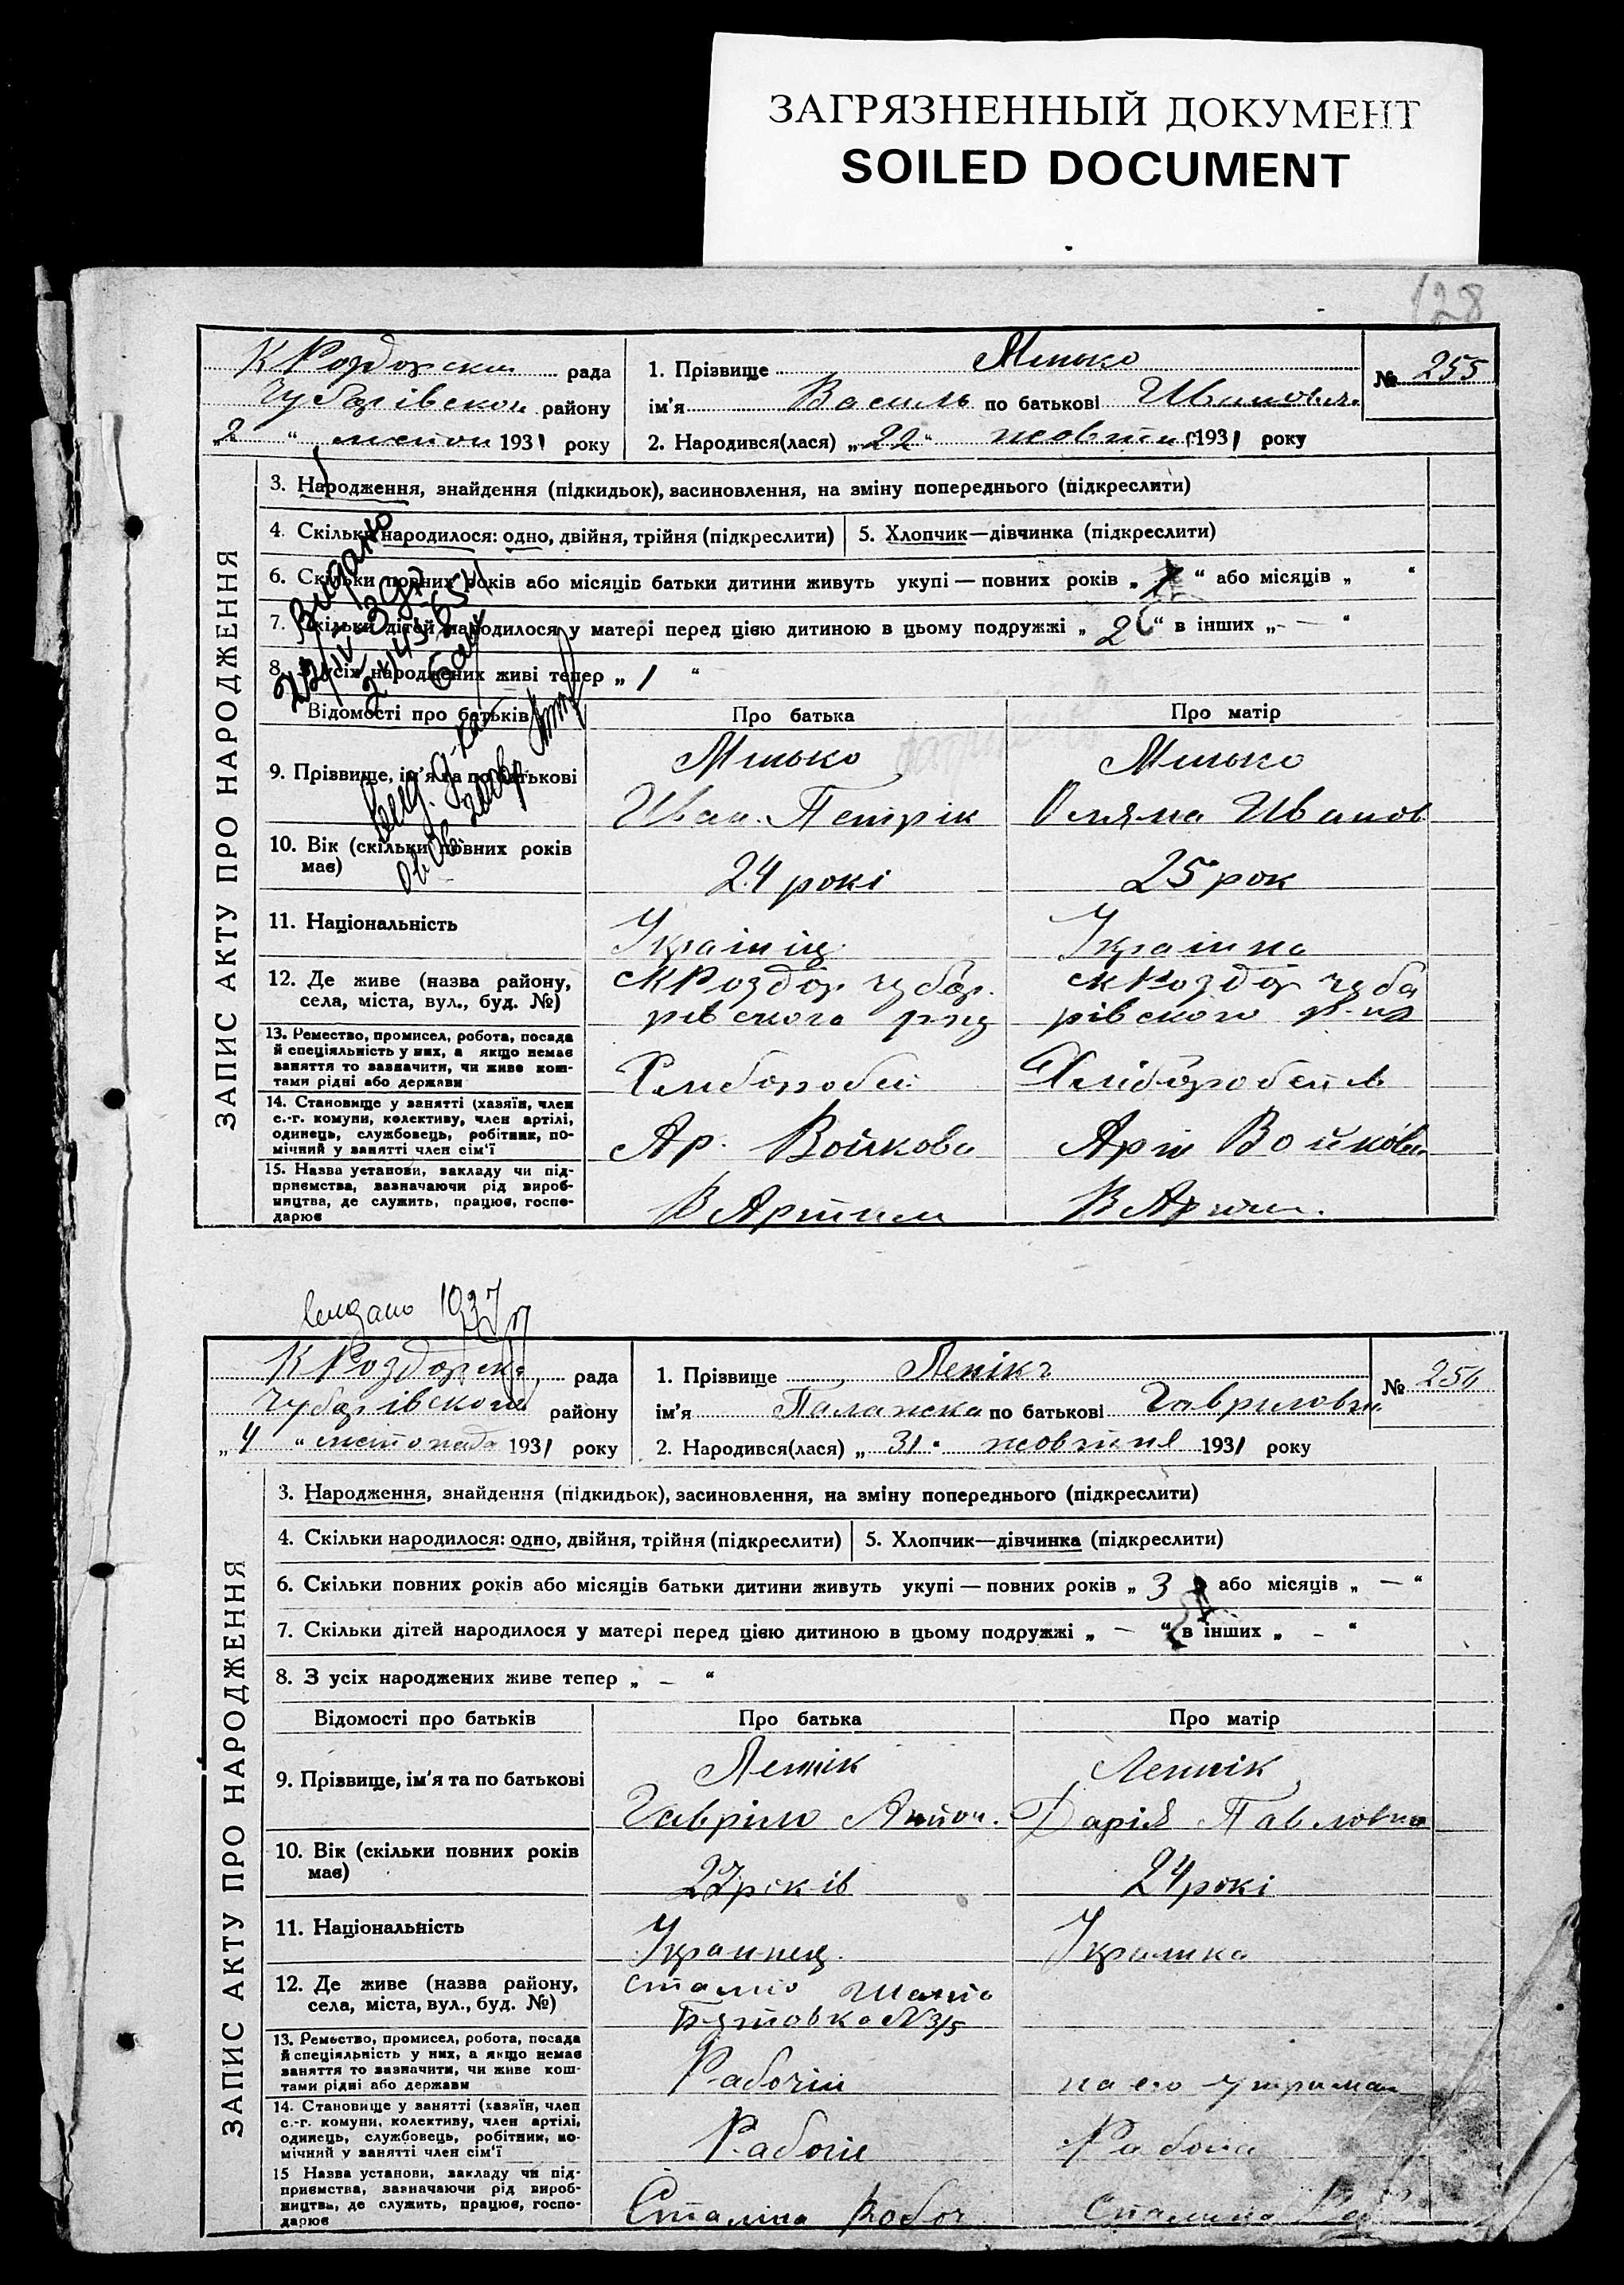 ЗАГРЯЗНЕННЫЙ ДОКУМЕНТ
SOILED DOCUMENT
128
ЗАПИС АКТУ ПРО НАРОДЖЕННЯ
К Роздорски рада
Чубарівской району
"2" листоп 1931 року
1. Прізвище Минько
№ 255
ім'я Василь по батькові Иванович
2. Народився(лася) „22" жовтня 1931 року
3. Народження, знайдення (підкидьок), засиновлення, на зміну попереднього (підкреслити)
4. Скільки народилося: одно, двійня, трійня (підкреслити)
5. Хлопчик—дівчинка (підкреслити)
6. Скільки повних років або місяців батьки дитини живуть укупі — повних років „ " або місяців „ "
7. Скільки дітей народилося у матері перед цією дитиною в цьому подружжі „ 2 " в інших „ — "
8. З усіх народжених живі тепер „ 1 "
Видано
Відомості про батьків
Про батька
Про матір
9. Прізвище, ім'я та по батькові
Минько
Иван Петрік
Минько
Оляна Иванов
10. Вік (скільки повних років має)
24 рокі
25 рок
11. Національність
Українц
Українка
12. Де живе (назва району, села, міста, вул., буд. №)
с К Роздор Чубар
рівского р-на
с К Роздор Чуба
рівского р-на
13. Ремество, промисел, робота, посада й спеціяльність у них, а якщо немає заняття то зазначити, чи живе коштами рідні або держави
Хлібороб
14. Становище у занятті (хазяїн, член с.-г. комуни, колективу, член артілі, одинець, службовець, робітник, помічний у занятті член сім'ї
Ар. Войкова
Арт Войкова
15. Назва установи, закладу чи підприємства, зазначаючи рід виробництва, де служить, працює, господарює
В Артили
В Артил.
видано 1937
ЗАПИС АКТУ ПРО НАРОДЖЕННЯ
К Роздорска рада
Чубарівской району
„4" листопада 1931 року
1. Прізвище Лепікъ
№ 256
ім'я Палажка по батькові Гавриловна
2. Народився(лася) „31" жовтня 1931 року
3. Народження, знайдення (підкидьок), засиновлення, на зміну попереднього (підкреслити)
4. Скільки народилося: одно, двійня, трійня (підкреслити)
5. Хлопчик—дівчинка (підкреслити)
6. Скільки повних років або місяців батьки дитини живуть укупі — повних років „ 3 " або місяців „ — "
7. Скільки дітей народилося у матері перед цією дитиною в цьому подружжі „ — " в інших „ - "
8. З усіх народжених живе тепер „ — "
Відомості про батьків
Про батька
Про матір
9. Прізвище, ім'я та по батькові
Лепик
Гавріло Антон.
Лепік
Дарія Павловна
10. Вік (скільки повних років має)
27 років
24 рокі
11. Національність
Украинец
Украинка
12. Де живе (назва району, села, міста, вул., буд. №)
Сталіно Шахта
Бутовка № 3/5
13. Ремество, промисел, робота, посада й спеціяльність у них, а якщо немає заняття то зазначити, чи живе коштами рідні або держави
Рабочій
на его утриман
14. Становище у занятті (хазяїн, член с.-г. комуни, колективу, член артілі, одинець, службовець, робітник, помічний у занятті член сім'ї
Рабочій
Рабоча
15 Назва установи, закладу чи підприємства, зазначаючи рід виробництва, де служить, працює, господарює
Сталіна Робоч
Сталина Роб